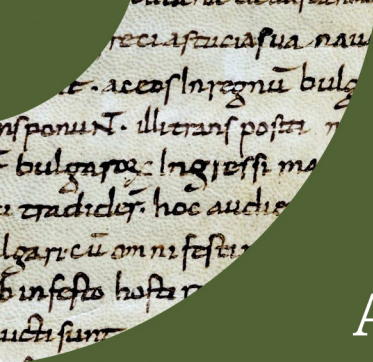 feci astucia sua nau
t · ac eos In regnū bulg
nsponuNt · illi trans positi
bulgaroꝝ Ingressi ma
tradider̄ · hoc audie
lgari · cū omni festi
b infesto hosti
ucti sunt
A